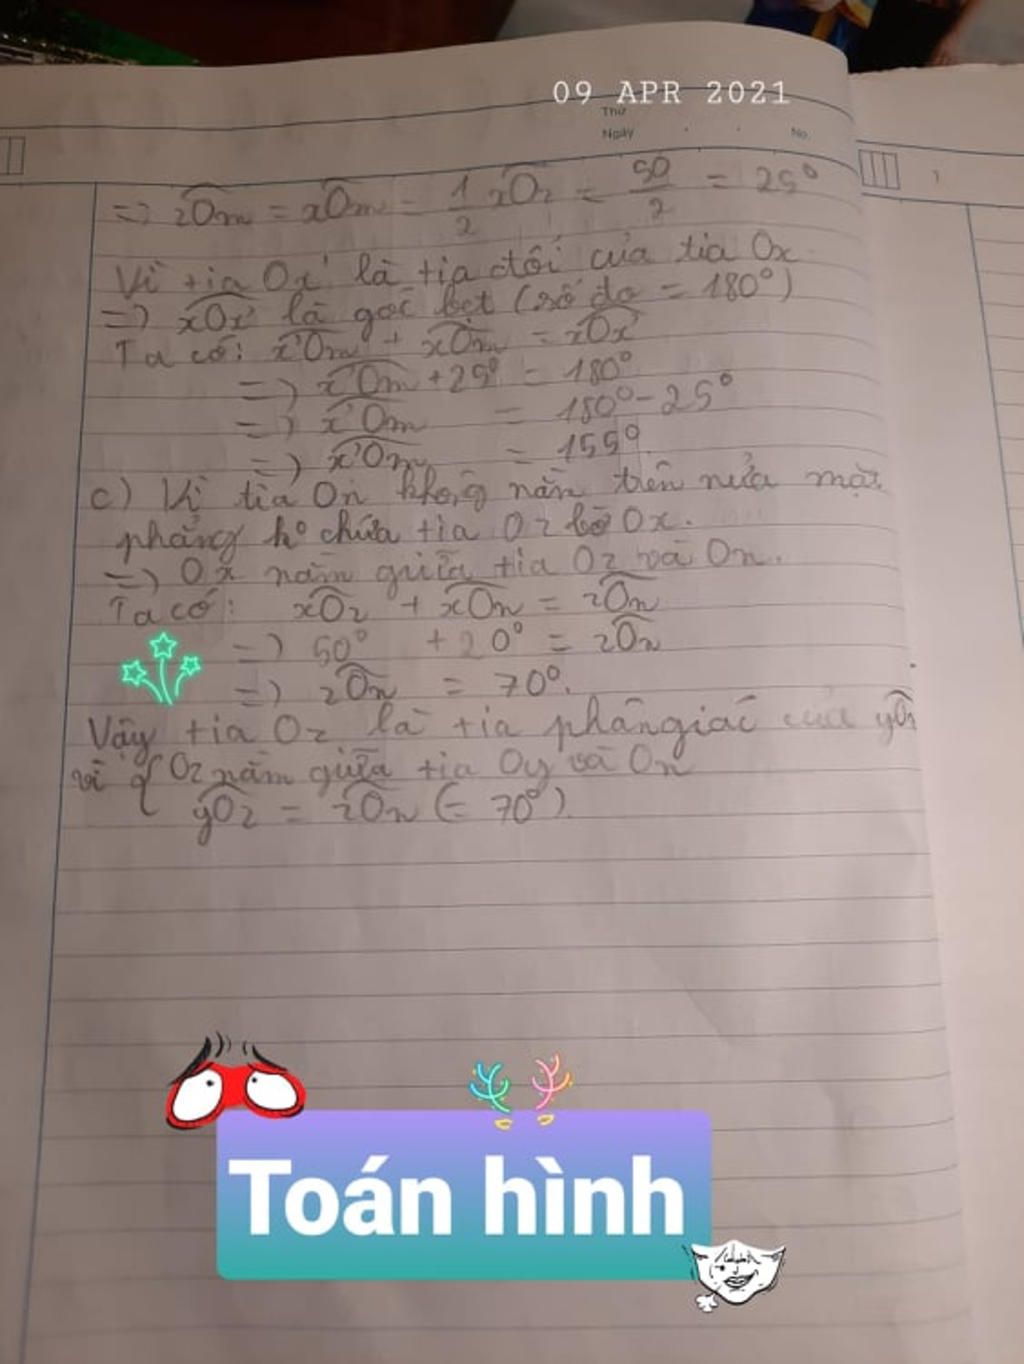 09 APR 2021
Thứ
Ngày . . No.
=> zOm = xOm = 1/2 xOz = 50/2 = 25°
Vì tia Ox' là tia đối của tia Ox
=> xOx' là góc bẹt (số đo = 180°)
Ta có: x'Om + xOm = xOx'
=> x'Om + 25° = 180°
=> x'Om = 180° - 25°
=> x'Om = 155°
c) Vì tia On không nằm trên nửa mặt
phẳng k° chứa tia Oz bờ Ox.
=> Ox nằm giữa tia Oz và On.
Ta có: xOz + xOn = zOn
=> 50° + 20° = zOn
=> zOn = 70°.
Vậy tia Oz là tia phân giác của yOn
vì { Oz nằm giữa tia Oy và On
yOz = zOn (= 70°)
Toán hình